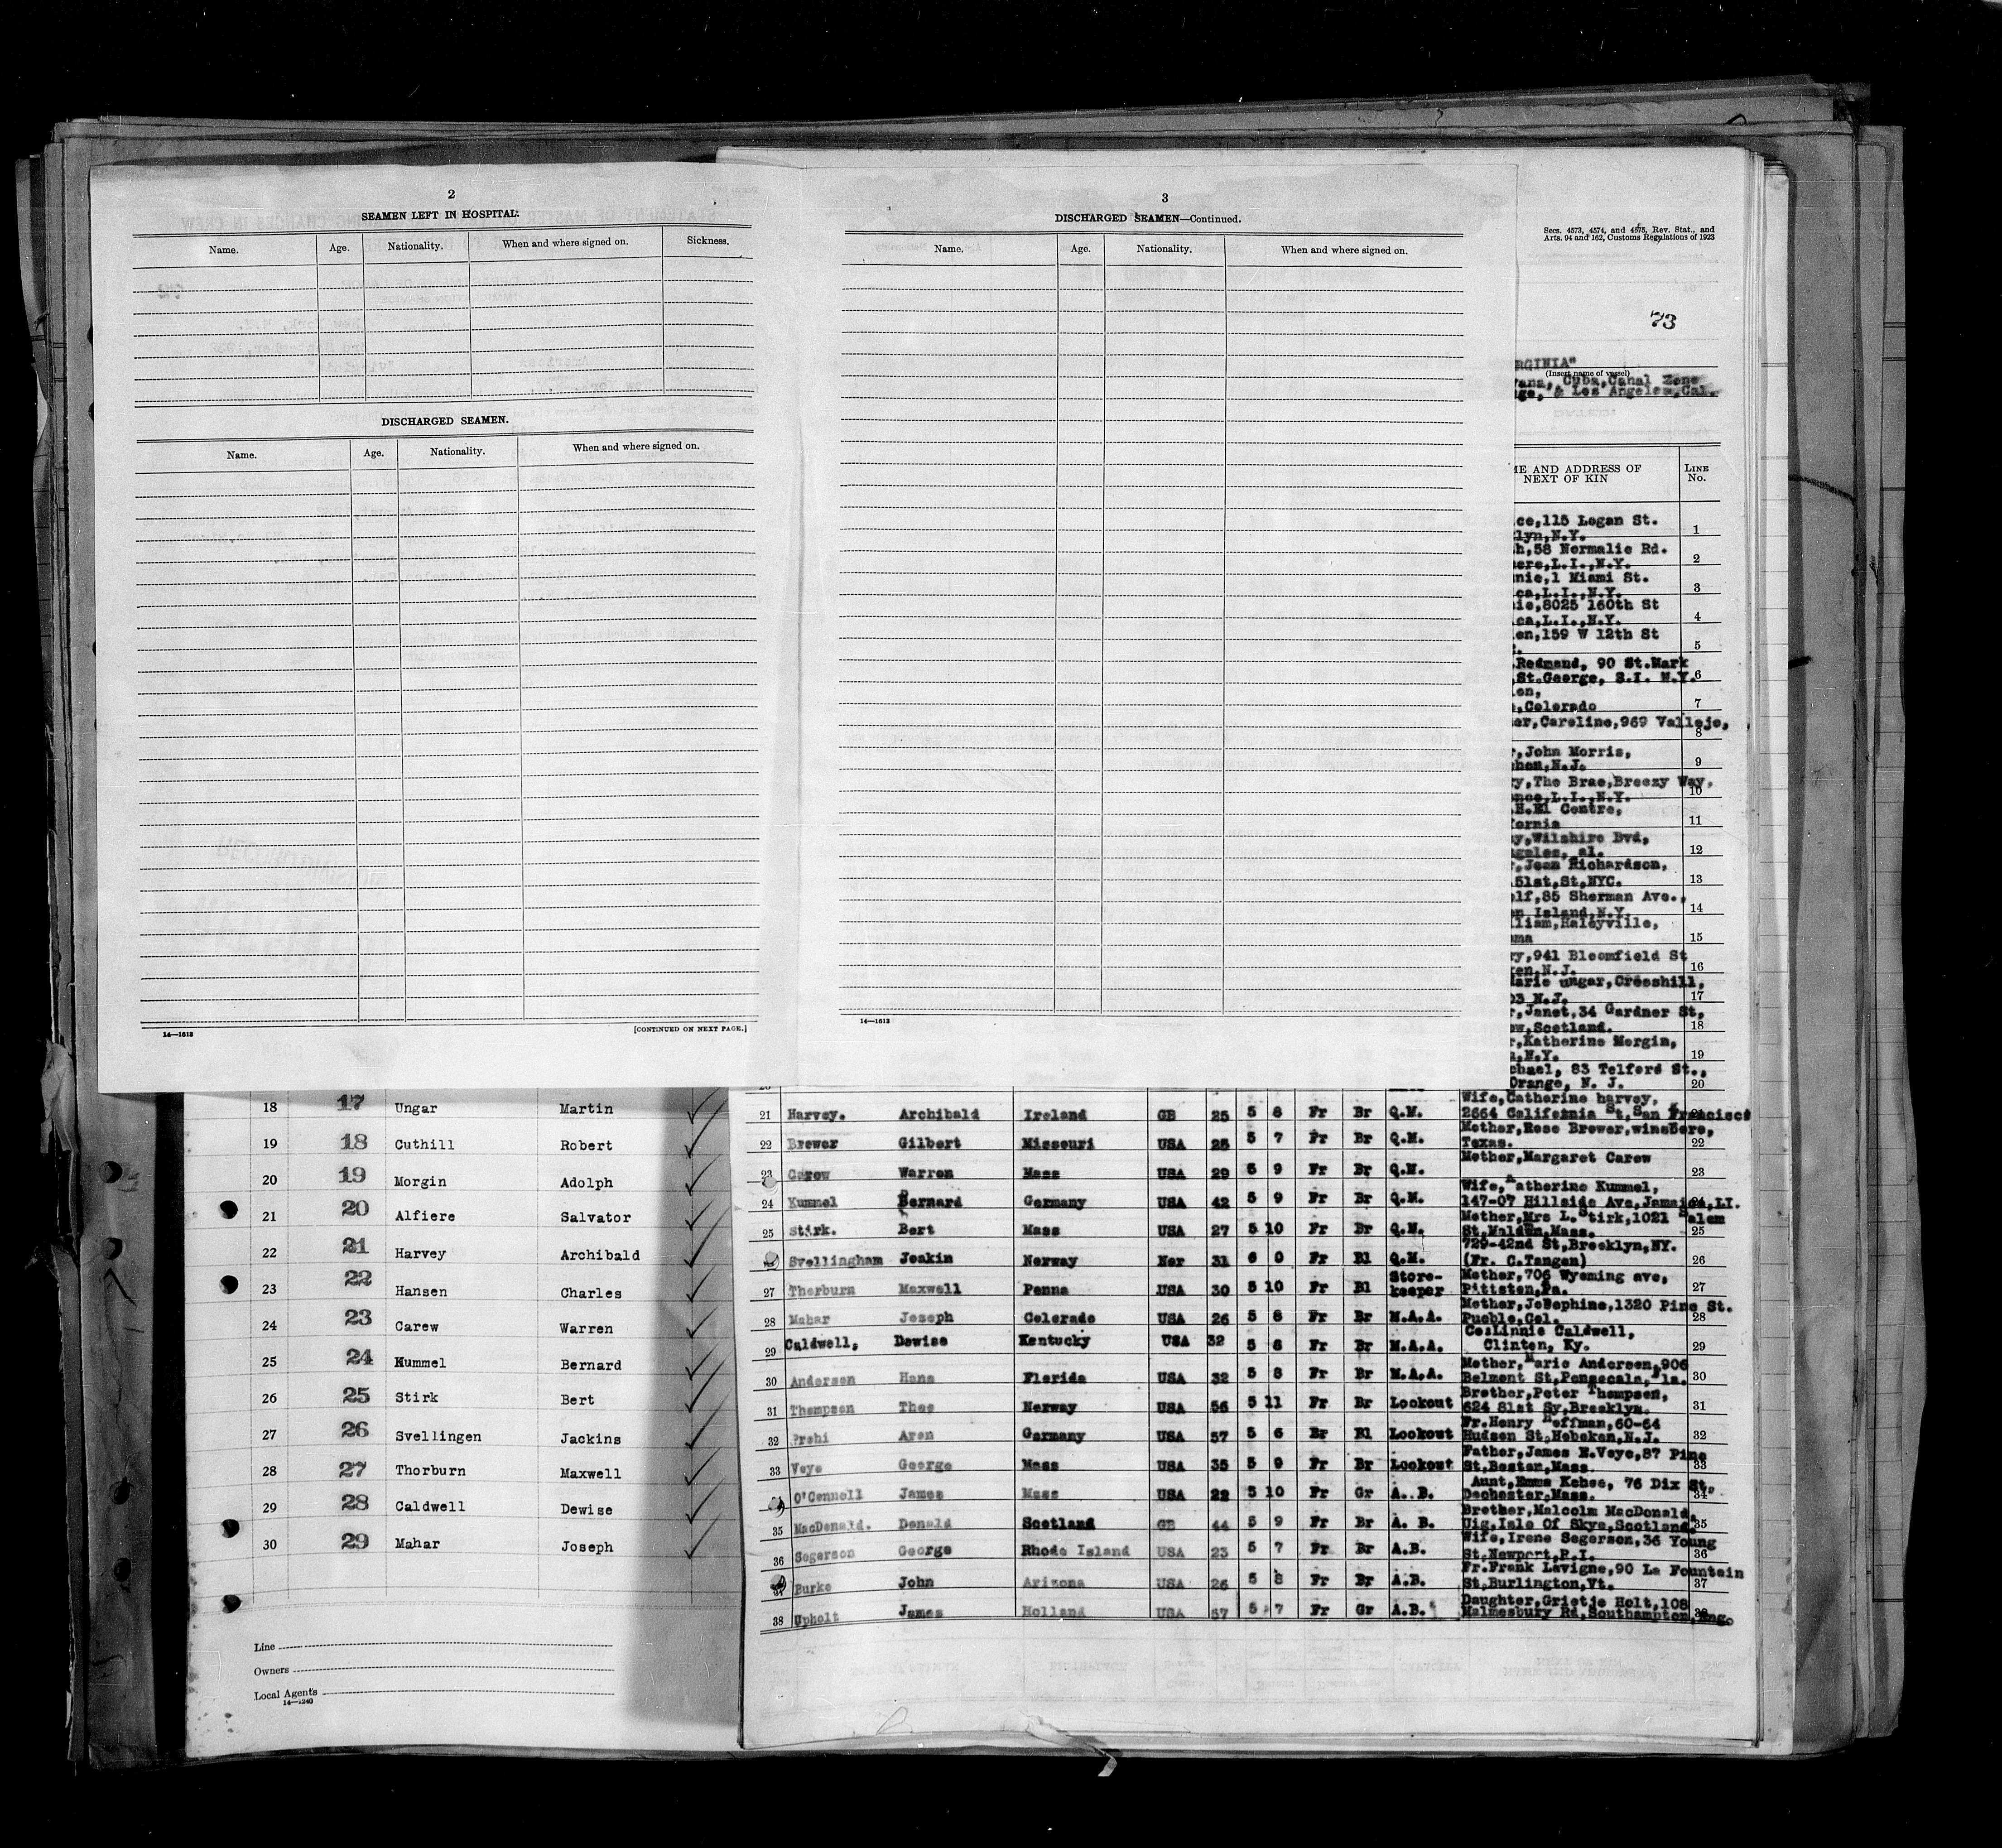 2
SEAMEN LEFT IN HOSPITAL.
Name. Age. Nationality. When and where signed on. Sickness.
DISCHARGED SEAMEN.
Name. Age. Nationality. When and where signed on.
14—1613 [CONTINUED ON NEXT PAGE.]
3
DISCHARGED SEAMEN—Continued.
Name. Age. Nationality. When and where signed on.
14—1613
Secs. 4573, 4574, and 4575, Rev. Stat., and
Arts. 94 and 162, Customs Regulations of 1923
73
RGINIA"
(Insert name of vessel)
vana, Cuba, Canal Zone
ge, & Los Angeles, Cal.
ME AND ADDRESS OF LINE
NEXT OF KIN No.
ce,115 Logan St.
lyn,N.Y. 1
h,58 Normalie Rd.
ere,L.I.,N.Y. 2
nie,1 Miami St.
ca,L.I.,N.Y. 3
ie,8025 160th St
ca,L.I.,N.Y. 4
en,159 W 12th St
5
Redmand, 90 St.Mark
St.George, S.I. N.Y. 6
en,
,Colorado 7
er,Caroline,969 Vallejo,
8
r,John Morris,
hen,N.J. 9
y,The Brae,Breezy Way,
nce,L.I.,N.Y. 10
.H.El Centre,
fornia 11
y,Wilshire Bvd,
ngeles, al. 12
r,Jean Richardson,
51st,St,NYC. 13
lf,85 Sherman Ave.,
en Island,N.Y. 14
lliam,Haleyville,
ama 15
ry,941 Bloomfield St
ken,N.J. 16
Marie ungar,Cresshill,
03 N.J. 17
r,Janet,34 Gardner St,
ow,Scotland. 18
r,Katherine Morgin,
n,N.Y. 19
chael, 83 Telford St.,
Orange, N. J. 20
18 17 Ungar Martin
19 18 Cuthill Robert
20 19 Morgin Adolph
21 20 Alfiere Salvator
22 21 Harvey Archibald
23 22 Hansen Charles
24 23 Carew Warren
25 24 Kummel Bernard
26 25 Stirk Bert
27 26 Svellingen Jackins
28 27 Thorburn Maxwell
29 28 Caldwell Dewise
30 29 Mahar Joseph
Line
Owners
Local Agents
14—1240
Wife,Catherine harvey,
21 Harvey. Archibald Ireland GB 25 5 8 Fr Br Q.M. 2664 California St,San Francisco 21
Mother,Rose Brewer,winsboro,
22 Brewer Gilbert Missouri USA 25 5 7 Fr Br Q.M. Texas. 22
Mother,Margaret Carew
23 Carew Warren Mass USA 29 5 9 Fr Br Q.M. 23
Wife,Katherine Kummel,
24 Kummel Bernard Germany USA 42 5 9 Fr Br Q.M. 147-07 Hillside Ave,Jamaica,LI. 24
Mother,Mrs L.Stirk,1021 Salem
25 Stirk. Bert Mass USA 27 5 10 Fr Br Q.M. St,Malden,Mass. 25
729-42nd St,Brooklyn,NY.
Svellingham Joakin Norway Nor 31 6 0 Fr Bl Q.M. (Fr. C.Tangen) 26
Store- Mother,706 Wyoming ave,
27 Thorburn Maxwell Penna USA 30 5 10 Fr Bl keeper Pittston,Pa. 27
Mother,Josephine,1320 Pine St.
28 Mahar Joseph Colorado USA 26 5 8 Fr Br M.A.A. Pueblo,Col. 28
CosLinnie Caldwell,
29 Caldwell, Dewise Kentucky USA 32 5 8 Fr Br M.A.A. Clinton, Ky. 29
Mother,Marie Andersen,906
30 Andersen Hans Florida USA 32 5 8 Fr Br M.A.A. Belmont St,Pensacola,Fla. 30
Brother,Peter Thompson,
31 Thompson Theo Norway USA 56 5 11 Fr Br Lookout 624 81st Sy,Brooklyn. 31
Fr.Henry Hoffman,60-64
32 Prehi Aren Germany USA 57 5 6 Br Bl Lookout Hudson St,Hoboken,N.J. 32
Father,James E.Veye,87 Pine
33 Veye George Mass USA 35 5 9 Fr Br Lookout St,Boston,Mass. 33
Aunt,Emma Kehoe, 76 Dix St,
O'Connell James Mass USA 22 5 10 Fr Gr A. B. Dochester,Mass. 34
Brother,Malcolm MacDonald,
35 MacDonald. Donald Scotland GB 44 5 9 Fr Br A. B. Uig,Isle Of Skye,Scotland. 35
Wife,Irene Segerson,36 Young
36 Segerson George Rhode Island USA 23 5 7 Fr Br A.B. St,Newport,R.I. 36
Fr.Frank Lavigne,90 La Fountain
37 Burke John Arizona USA 26 5 8 Fr Br A.B. St,Burlington,Vt. 37
Daughter,Grietje Holt,108
38 Upholt James Holland USA 57 5 7 Fr Gr A.B. Malmesbury Rd,Southampton,Eng. 38